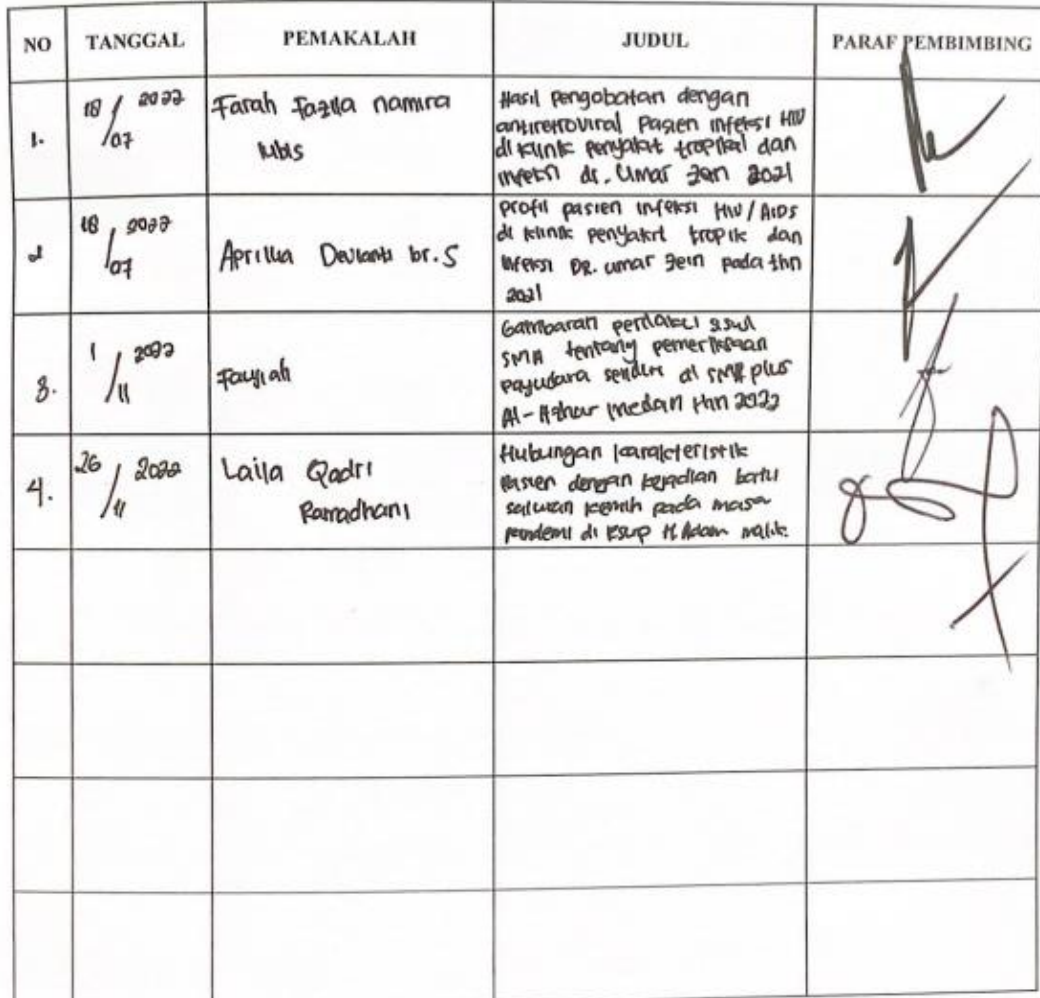 NO TANGGAL PEMAKALAH JUDUL PARAF PEMBIMBING
1.
18/07 2022
Farah Fazila namira
lubis
Hasil pengobatan dengan
antiretroviral Pasien infeksi HIV
di klinik penyakit tropikal dan
infeksi dr. Umar Zein 2021
2
18/07 2022
Aprillia Devianti br. S
profil pasien infeksi HIV/AIDS
di klinik penyakit tropik dan
infeksi DR. umar Zein pada thn
2021
3.
1/11 2022
Fauziah
Gambaran perilaku siswi
SMA tentang pemeriksaan
payudara sendiri di SMA plus
Al-Azhar medan thn 2022
4.
26/11 2022
Laila Qadri
Ramadhani
Hubungan karakteristik
Pasien dengan kejadian batu
saluran kemih pada masa
pandemi di RSUP H. Adam malik.